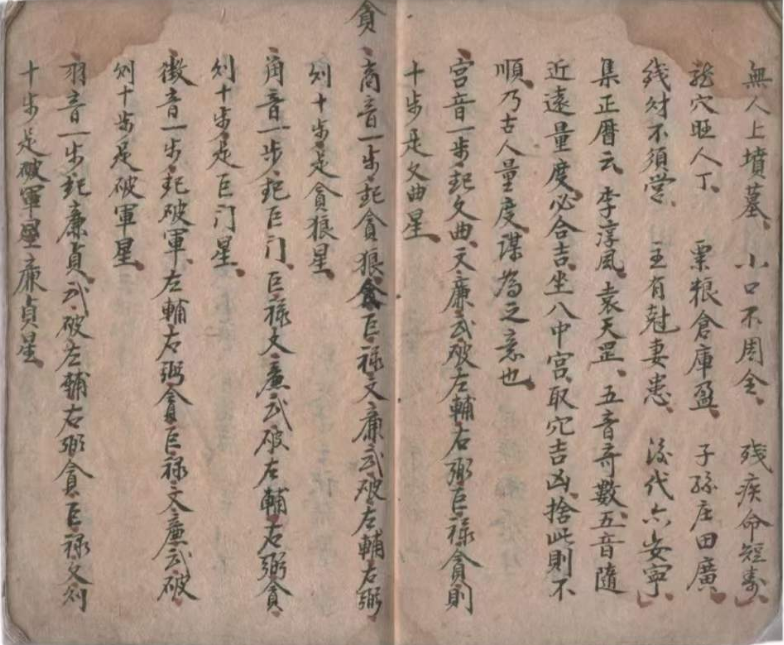 無人上墳墓 小口不周全 殘疾命短壽
龍穴旺人丁 粟粮倉庫盈 子孫庄田廣
錢財不須營 主有尅妻患 後代六安寧
集正曆云李淳風袁天罡五音奇數五音隨
近遠量度必合吉坐八中宮取穴吉凶捨此則不
順乃古人量度謀為之意也
宮音一步起文曲文廉武破左輔右弼巨祿貪則
十步是文曲星
商音一步起貪狼貪巨祿文廉武破左輔右弼
貪
則十步是貪狼星
角音一步起巨门巨祿文廉武破左輔右弼貪
則十步是巨门星
徵音一步起破軍左輔右弼貪巨祿文廉武破
則十步是破軍星
羽音一步起廉貞武破左輔右弼貪巨祿文則
十步是破軍星廉貞星